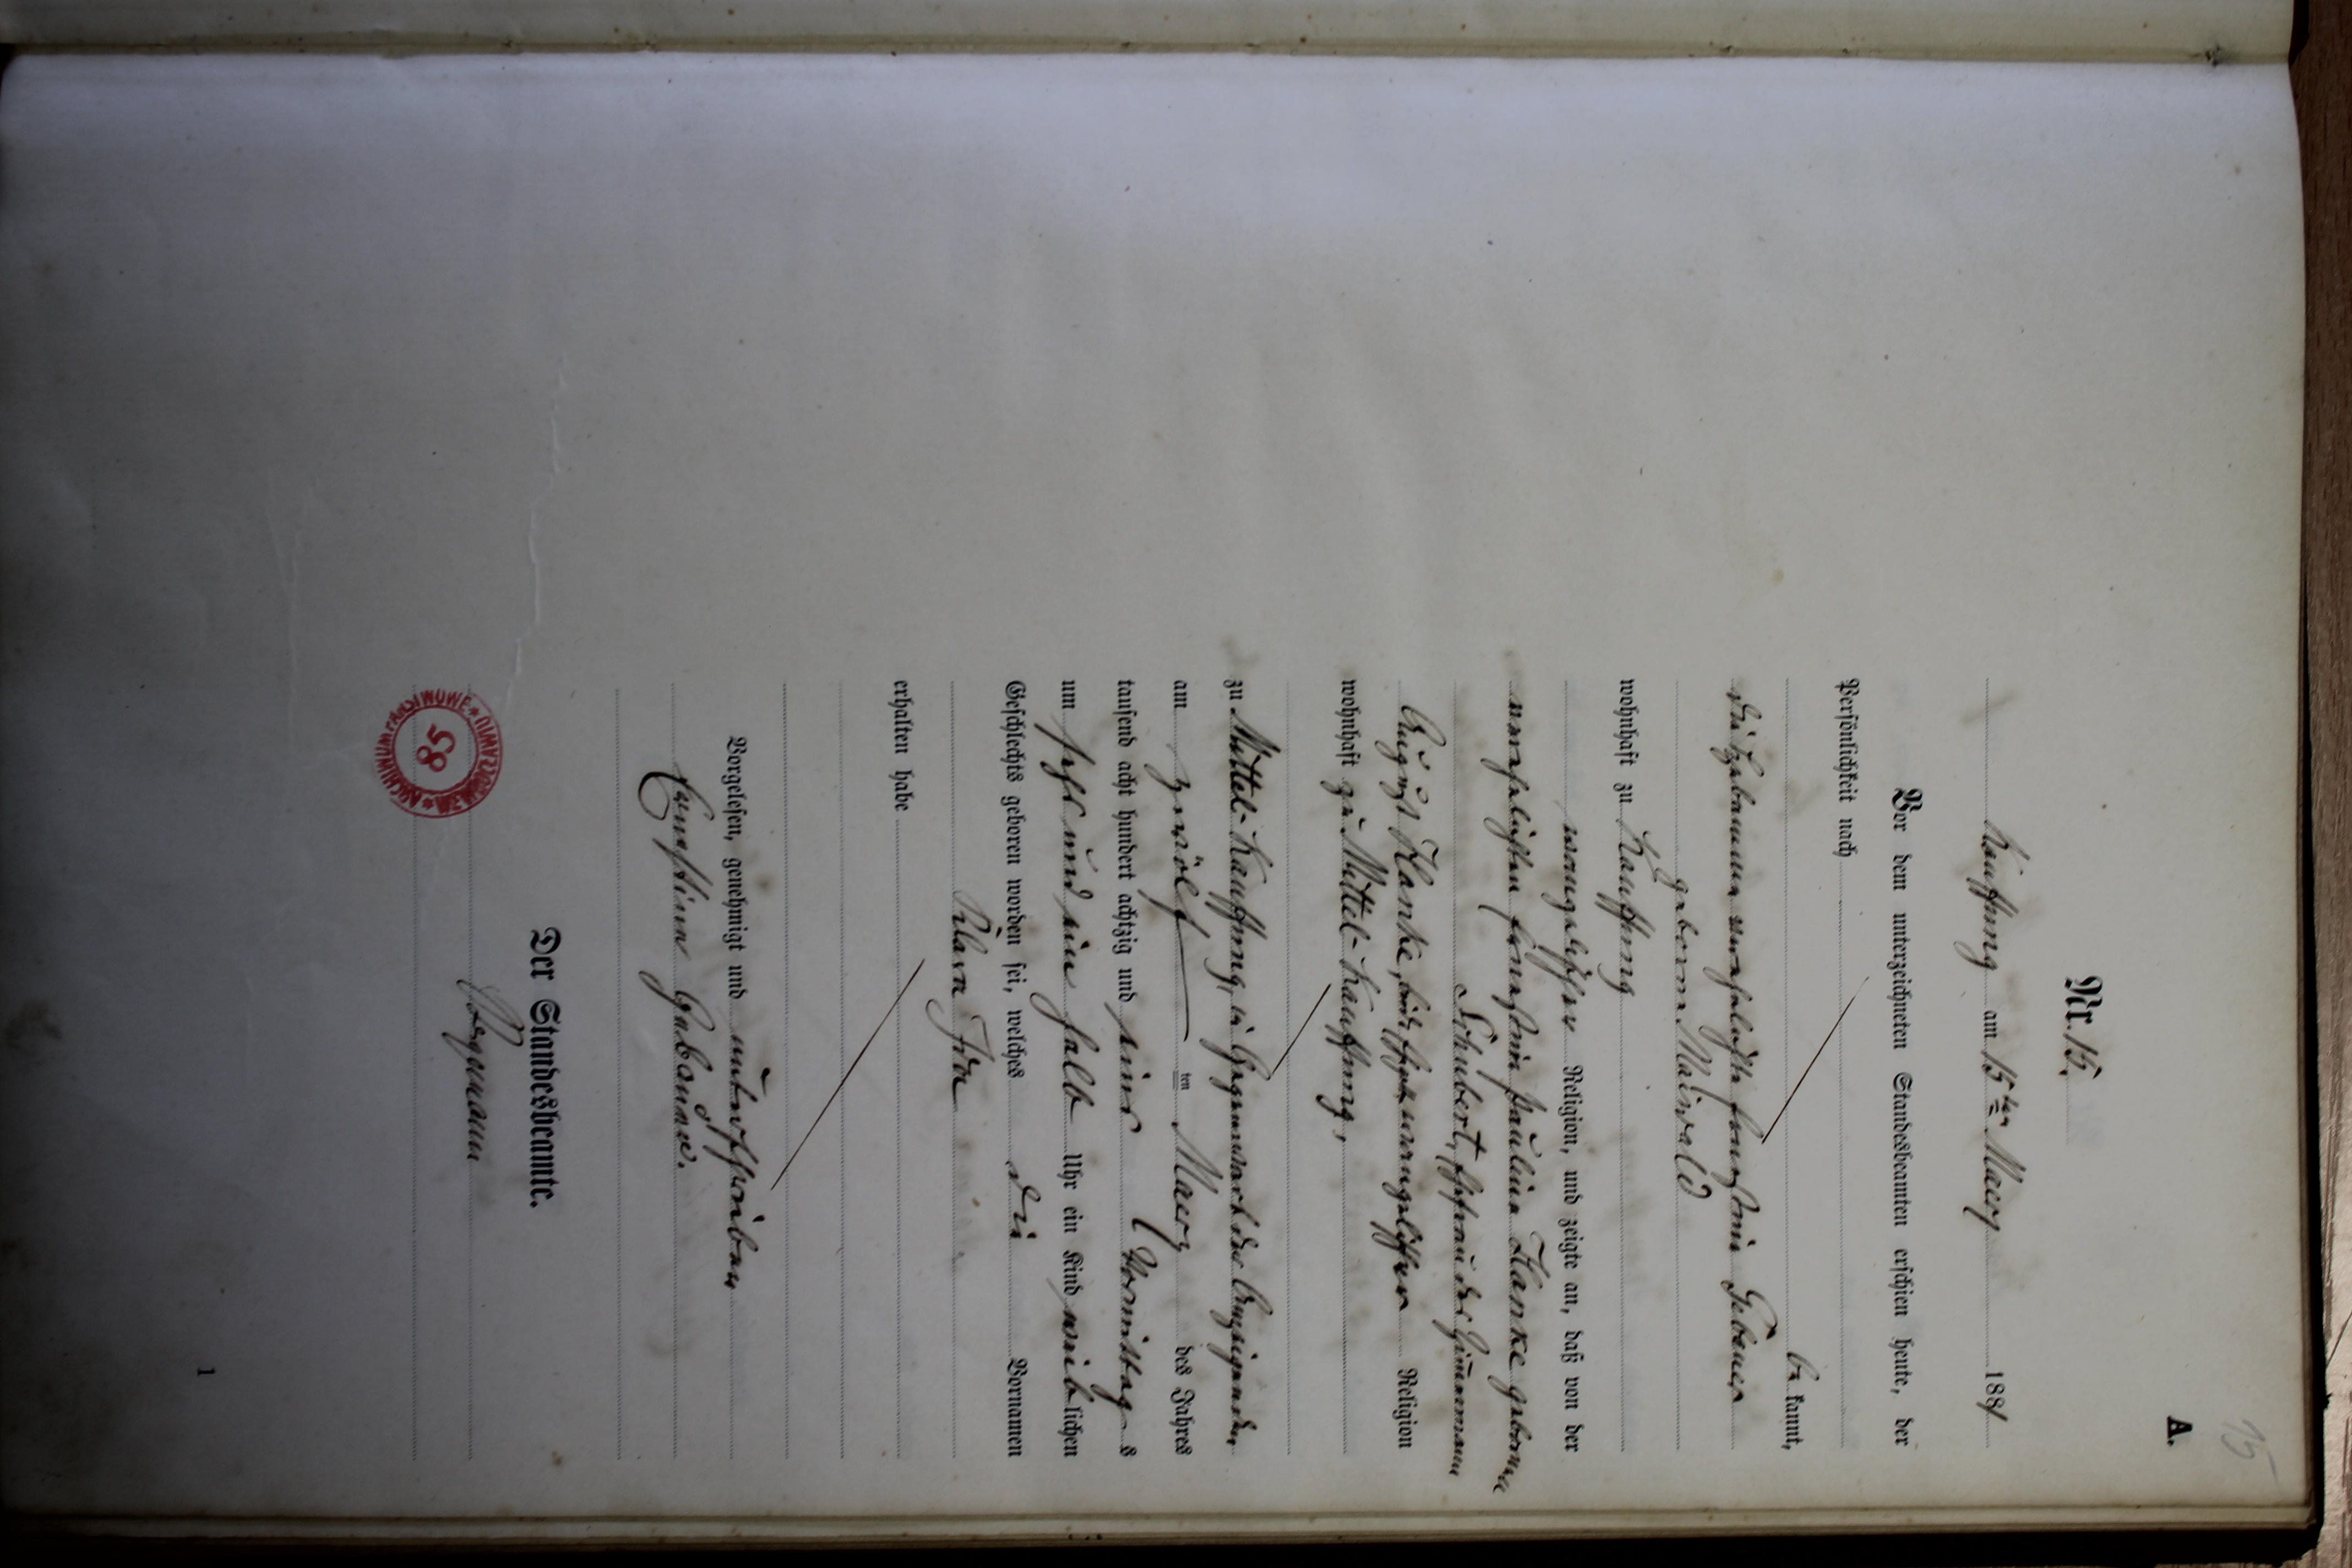 15
A.
Nr. 15.
Kauffung am 15ten Maerz 1881
Vor dem unterzeichneten Standesbeamten erschien heute, der
Persönlichkeit nach
be kannt,
die Hebamme verehelichte Ernestine Gebauer
geborne Maiwald
wohnhaft zu Kauffung
evangelischer Religion, und zeigte an, daß von der
verehelichten Ernestine Pauline Hanke geborne
Schubert, Ehefrau des Zimmermann
August Hanke, beide evangelischer Religion
wohnhaft zu Mittel-Kauffung,
zu Mittel-Kauffung, in Gegenwart der Anzeigenden
am zwölf ten Maerz des Jahres
tausend acht hundert achtzig und eins Vormittag s
um sechs und ein halb Uhr ein Kind weib lichen
Geschlechts geboren worden sei, welches die Vornamen
Clara Ida
erhalten habe
Vorgelesen, genehmigt und unterschrieben
Ernestine Gebauer.
Der Standesbeamte.
ARCHIWUM PAŃSTWOWE
85
1